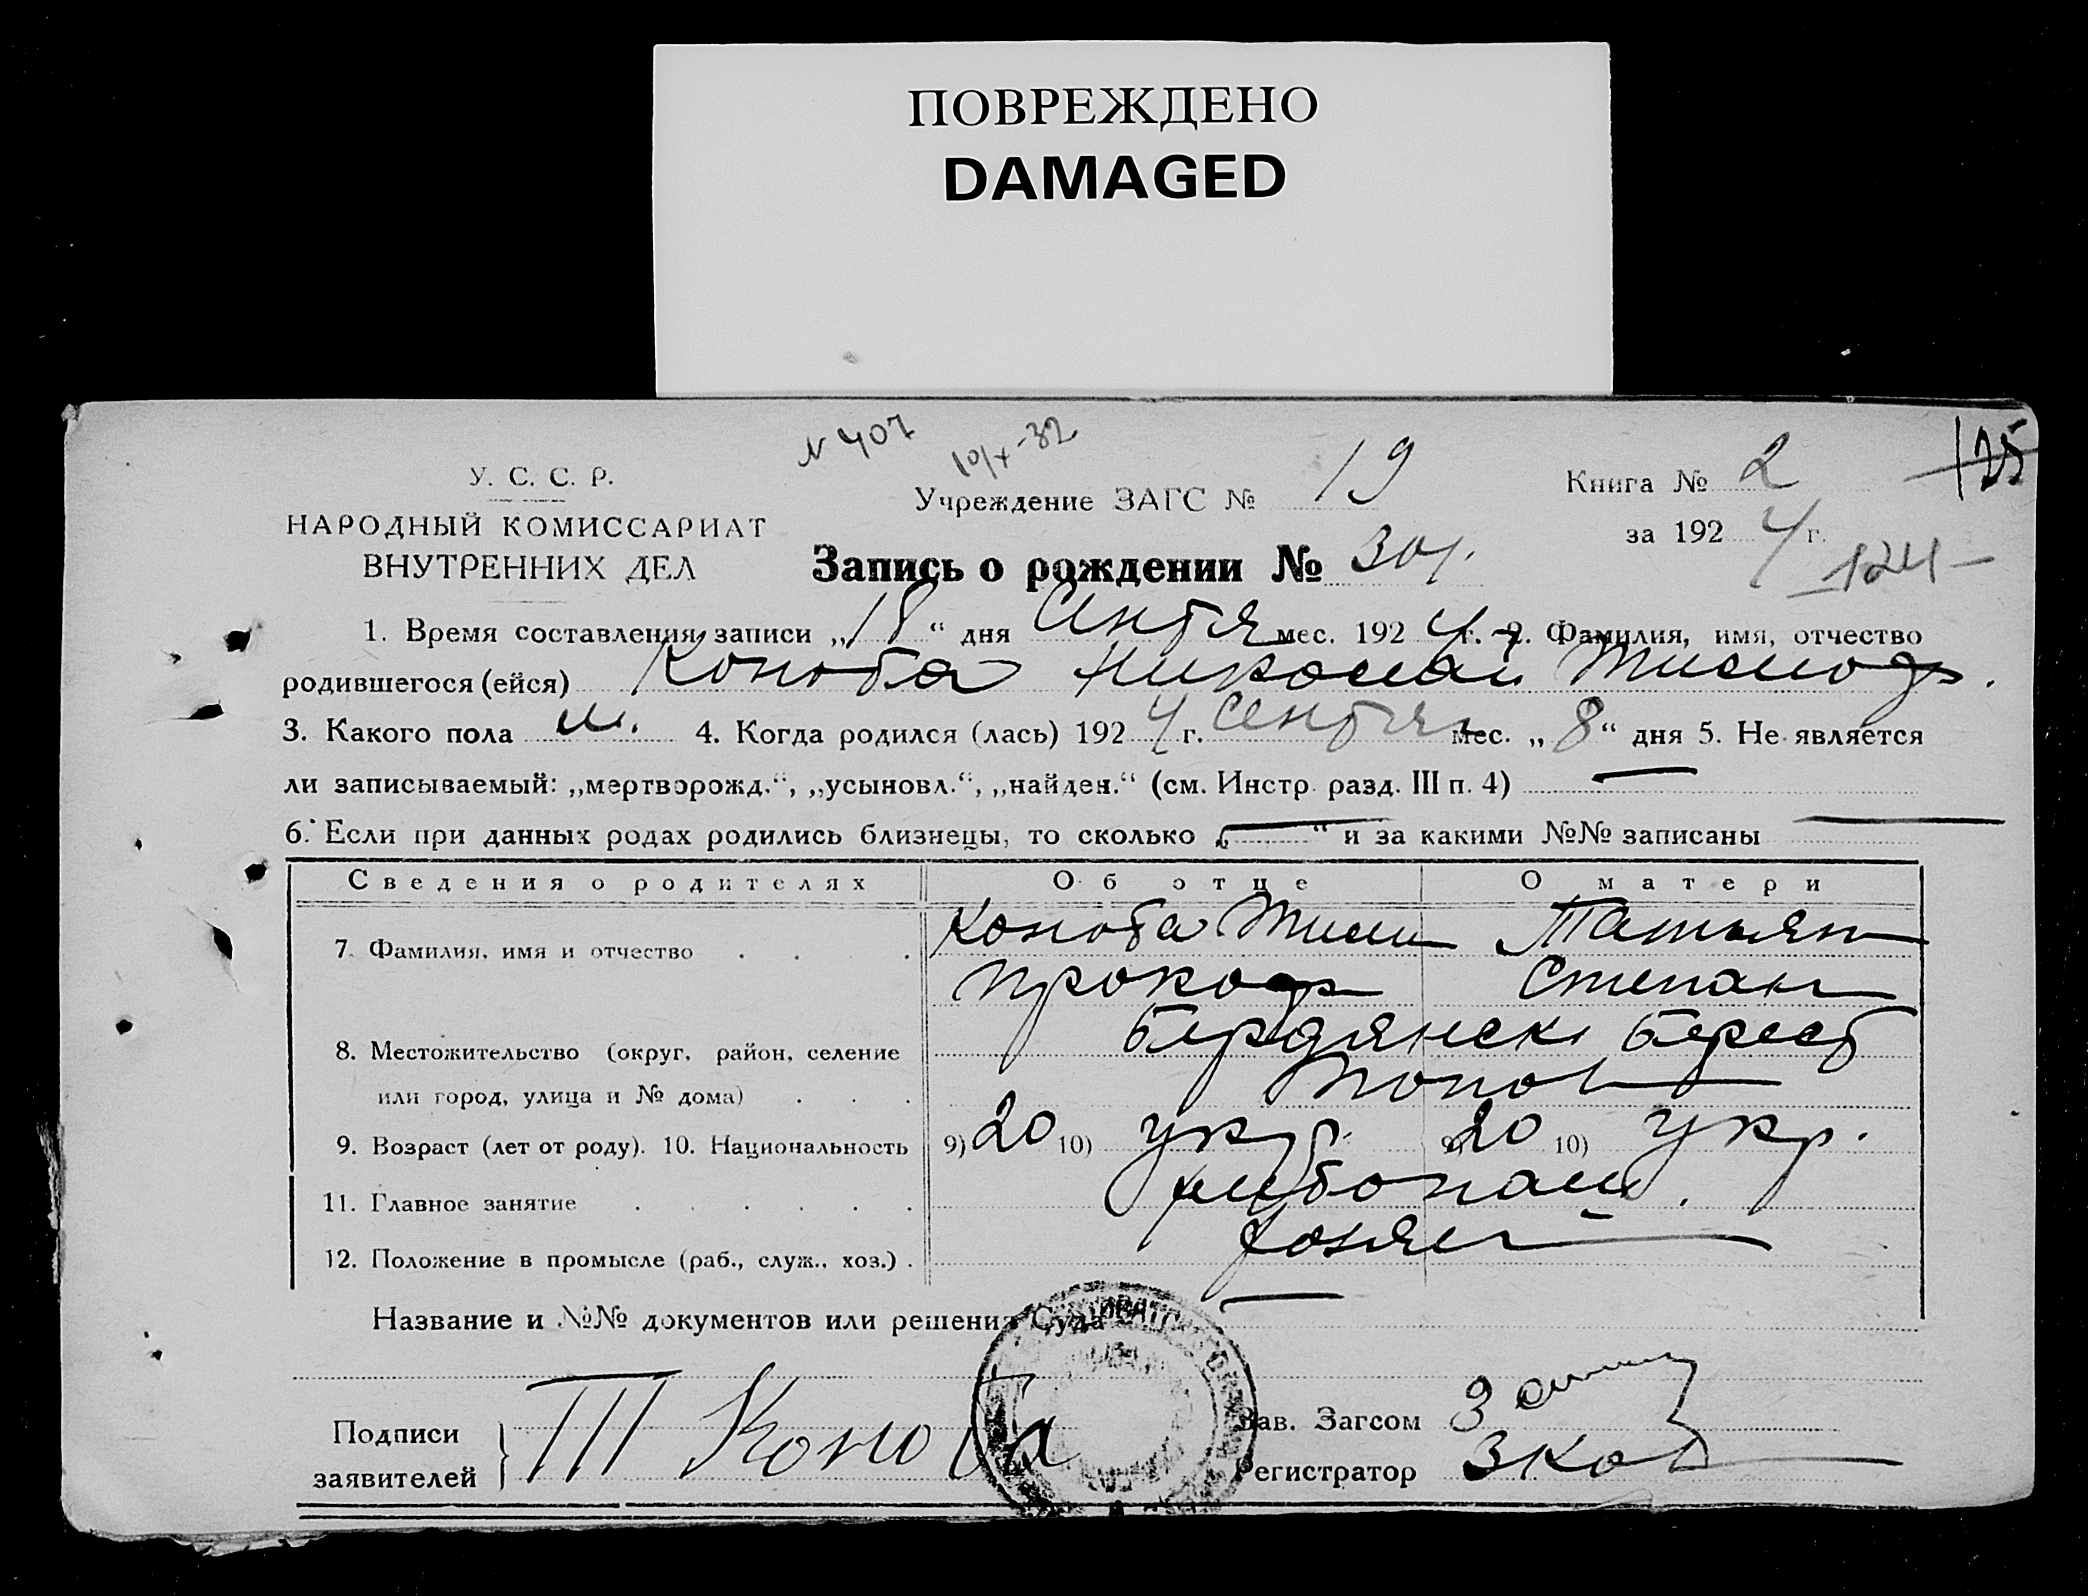 ПОВРЕЖДЕНО
DAMAGED
N 407
10/X-32
125
У. С. С. Р.
НАРОДНЫЙ КОМИССАРИАТ
ВНУТРЕННИХ ДЕЛ
Учреждение ЗАГС № 19
Книга № 2
за 1924 г.
124
Запись о рождении №
1. Время составления записи „18“ дня Сентя мес. 1924 г. 2. Фамилия, имя, отчество
родившегося (ейся) Коноба Николай Тимоф.
3. Какого пола м. 4. Когда родился (лась) 1924 г. Сентя мес. „8“ дня 5. Не является
ли записываемый: „мертворожд.“, „усыновл.“, „найден.“ (см. Инстр. разд. III п. 4) —
6. Если при данных родах родились близнецы, то сколько „—“ и за какими №№ записаны —
Сведения о родителях Об отце О матери
7. Фамилия, имя и отчество Коноба Тим Татьян
Прокоф Степан
8. Местожительство (округ, район, селение Бердянск Берест
или город, улица и № дома)
9. Возраст (лет от роду). 10. Национальность 9) 20 10) укр. 9) 20 10) укр.
11. Главное занятие хлебопаш.
12. Положение в промысле (раб., служ., хоз.) хозяин
Название и №№ документов или решения Суда —
Подписи
заявителей
Т Коноба
Зав. Загсом
Регистратор